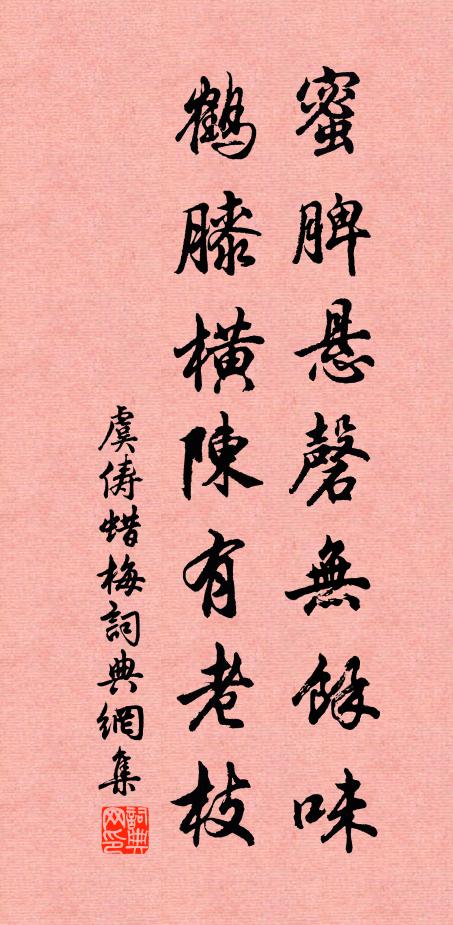 蜜脾悬磬無餘味
鶴膝橫陳有老枝
虞儔蜡梅詞典網集
詞典网印